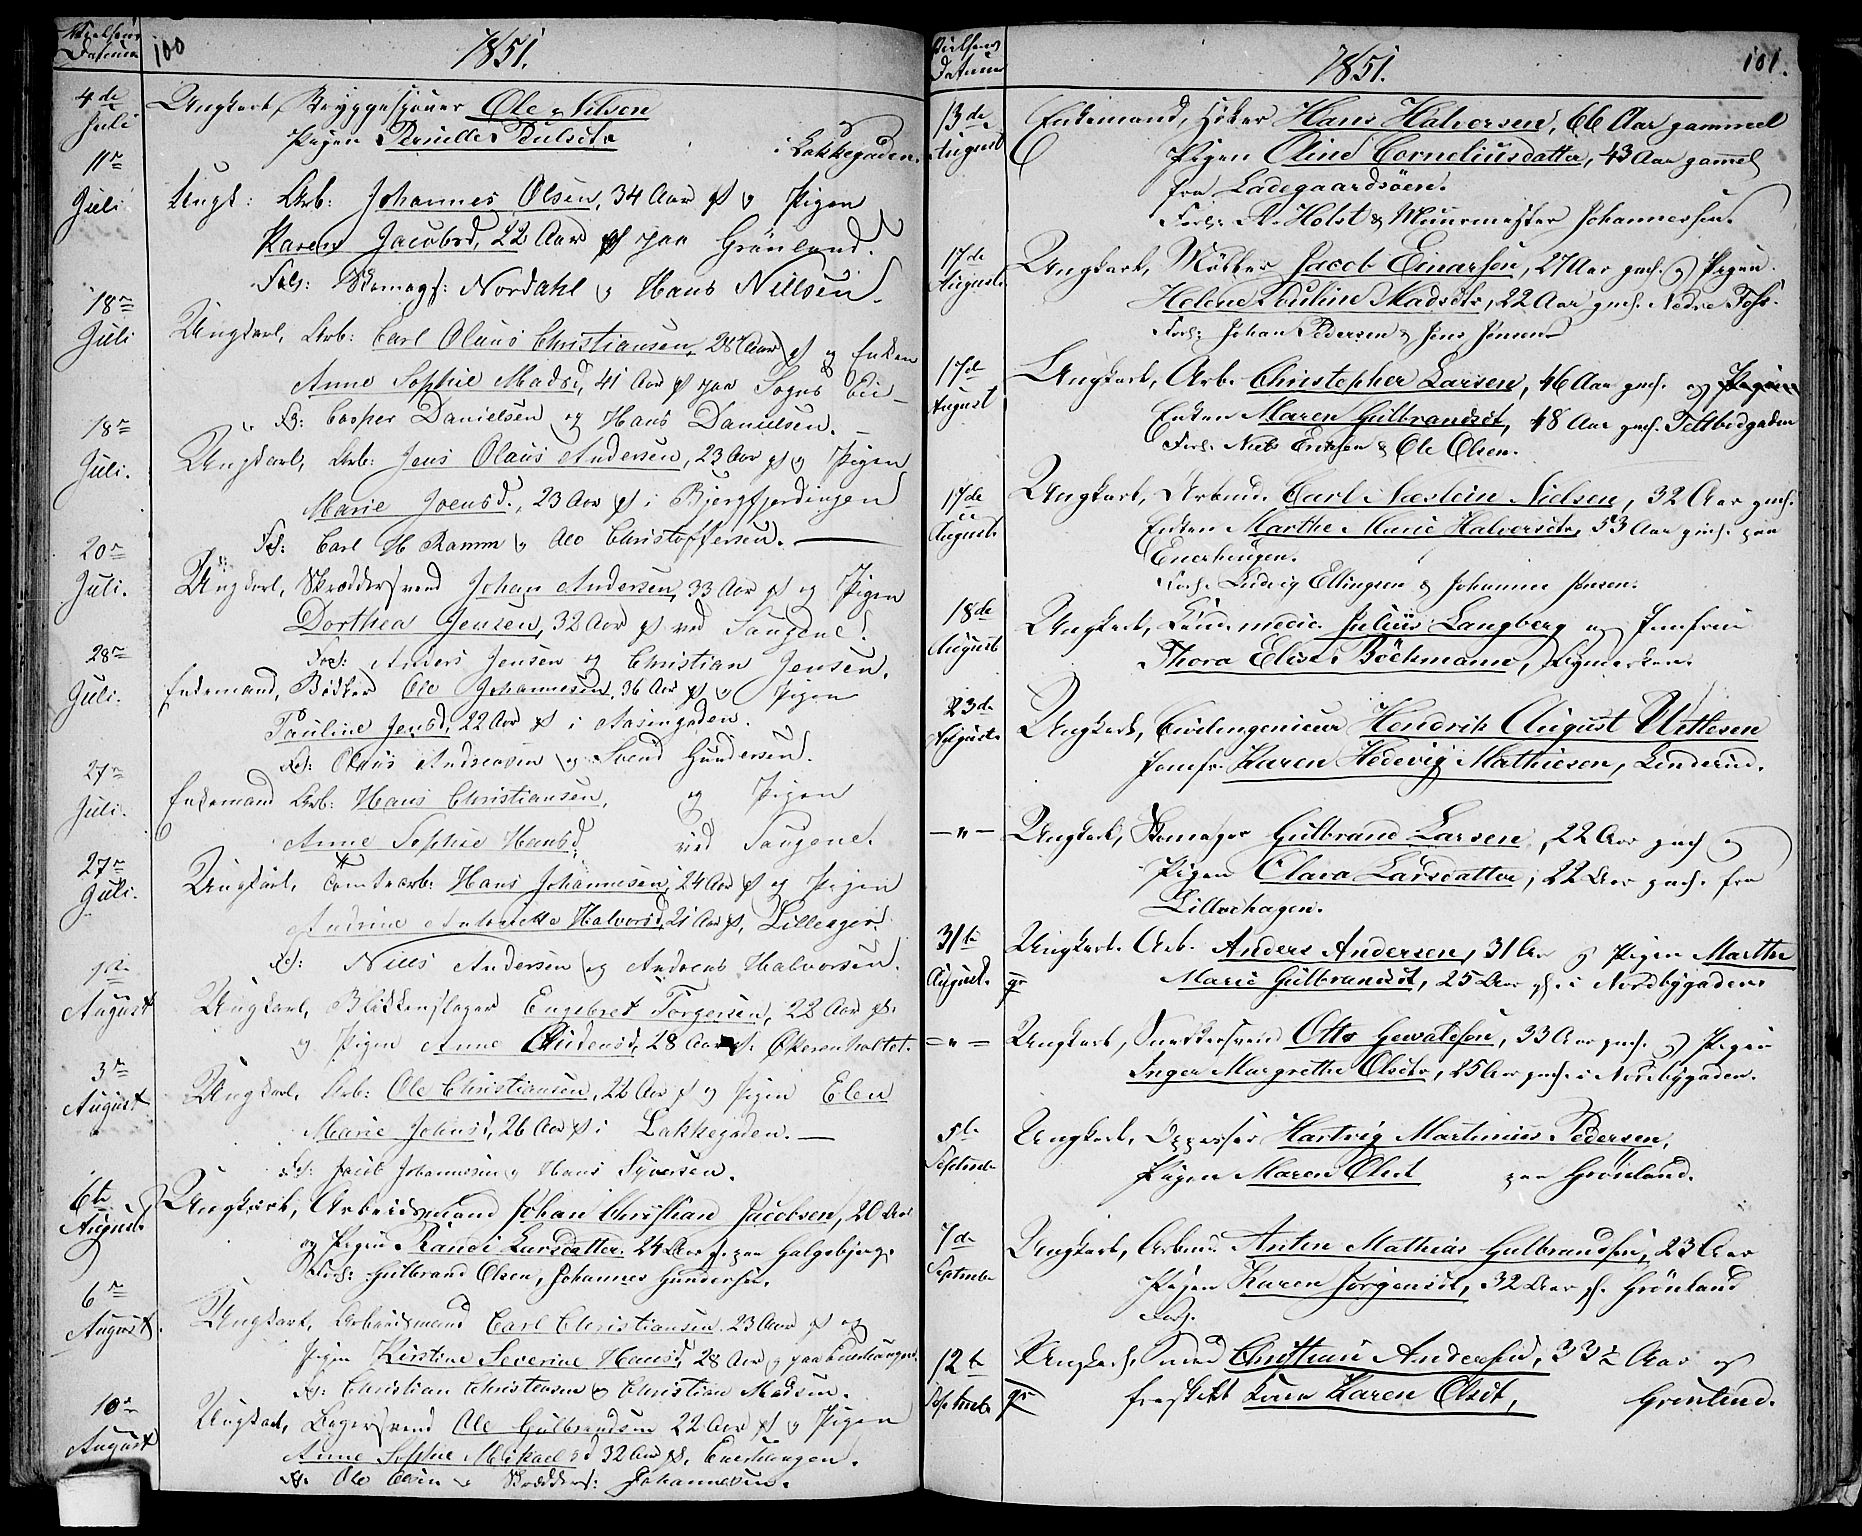 Vielsens Datum
100
1851.
4de Juli
Ungkarl, Bryggesjouer Ole Nilsen
Pigen Pernille Pulsdtr
i Lakkegaden.
11te Juli
Ungk: Arb: Johannes Olsen, 34 Aar gl og Pigen
Karen Jacobsd, 22 Aar gl paa Grönland.
Forl: Skomagr: Nordahl og Hans Nillsen.
18de Juli
Ungkarl, Arb: Carl Olaus Christiansen, 28 Aar gl og Enken
Anne Sophie Madsd, 41 Aar gl paa
Forl: Casper Danielsen og Hans Danielsen.
18de Juli.
Ungkarl, Arb: Jens Olaus Andersen, 23 Aar gl og Pigen
Marie Joensd., 23 Aar gl i Bjergfjerdingen
Forl: Carl H Ramm og Ole Christoffersen.
20de Juli.
Ungkarl, Skræddersvend Johan Andersen, 33 Aar gl og Pigen
Dorthea Jensen, 32 Aar gl ved Saugene.
Forl: Anders Jensen og Christian Jensen.
28de Juli.
Enkemand, Bödker Ole Johannesen, 36 Aar gl og Pigen
Pauline Jensd, 22 Aar gl i
Forl: Olaus Andreasen og Svend Gundersen.
27de Juli.
Enkemand Arb: Hans Christiansen, og Pigen
Anne Sophie Hansd, ved Saugene.
27de Juli.
Ungkarl, Hans Johannesen, 24 Aar gl og Pigen
Andrine Antonette Halvorsd, 21 Aar gl, Lilleager.
Forl: Niels Andersen og Andreas Halvorsen.
1ste August
Ungkarl, Blikkenslager Engebret Torgersen, 22 Aar gl.
og Pigen Anne 28 Aar gl.
3de August
Ungkarl, Arb: Ole Christiansen, 22 Aar gl og Pigen Elen
Marie Johnsd, 26 Aar gl i Lakkegaden.
Forl: Jacob Johannesen og Hans Syversen.
6te August
Ungkarl, Arbeidsmand Johan Christian Jacobsen, 20 Aar
og Pigen Randi Larsdatter, 24 Aar gl. paa Galgebjerg.
Forl: Gulbrand Olsen, Johannes Gundersen.
6te August.
Ungkarl, Arbeidsmand Carl Christiansen, 23 Aar gl og
Pigen Kirstine Severine Hansd, 28 Aar gl paa Enerhaugen.
Forl: Christian Christensen og Christian Madsen.
10de August
Ungkarl, Ole Gulbrandsen 22 Aar gl og Pigen
Anne Sophie Mikaelsd 32 Aar gl. Enerhaugen.
Forl: Ole og Skrædders: Johannesen.
Vielsens Datum
1851.
101.
13de August
Enkemand, Höker Hans Halvorsen, 66 Aar gammel
Pigen Oline Corneliusdatter, 43 Aar gamel
fra Ladegaardsöen.
Forl: A. Holst & Muurmester Johannessen.
17de August
Ungkarl, Möller Jacob Einarsen, 27 Aar gml. og Pigen
Helene Pauline Madsdtr, 22 Aar gml. Nedre Foss.
Forl: Johan Pedersen & Jens Jensen
17de August
Ungkarl, Arb. Christopher Larsen, 46 Aar gml. og Pigen
Enken Maren Gulbrandsdt, 48 Aar gml. Toldbodgaden
Forl: Niels Eriksen & Ole Olsen.
17de August
Ungkarl, Arbmd. Carl Nielsen, 32 Aar gml.
Enken Marthe Marie Halvorsdtr, 53 Aar gml. paa
Enerhaugen.
Forl. Ludvig Ellingsen & Johannes Jensen.
18de August
Ungkarl, Cand. medic. Julius Langberg og Jomfrue
Thora Elise Böckmann,
23de August
Ungkarl, Civilingenieur Hendrik August Uchermann
Jomfr. Karen Hedevig Mathiesen, Linderud.
— " —
Ungkarl, Skomager Gulbrand Larsen, 22 Aar gml og
Pigen Clara Larsdatter, 22 Aar gml. fra
Lillohagen.
31te August.
Ungkarl. Arb. Anders Andersen, 31 Aar og Pigen Marthe
Marie Gulbrandsdt, 25 Aar gl. i Nordbygaden
— " —
Ungkarl, Snedkersvend Otto 33 Aar gml. og Pigen
Inger Margrethe Olsdtr, 25 Aar gml. i Nordbygaden.
5te Septembr
Ungkarl, Oppasser Hartvig Martinius Pedersen,
Pigen Maren Olsdt paa Grönland.
7de Septembr
Ungkarl, Arbmd. Anton Mathias Gulbrandsen, 23 Aar
Pigen Karen Jörgensdt, 32 Aar gl. Grönland
Forl.
12te Septembr
Ungkarl. Smed Christian Andersen, 33½ Aar og
fraskilt Kone Karen Olsdt, Grönland.